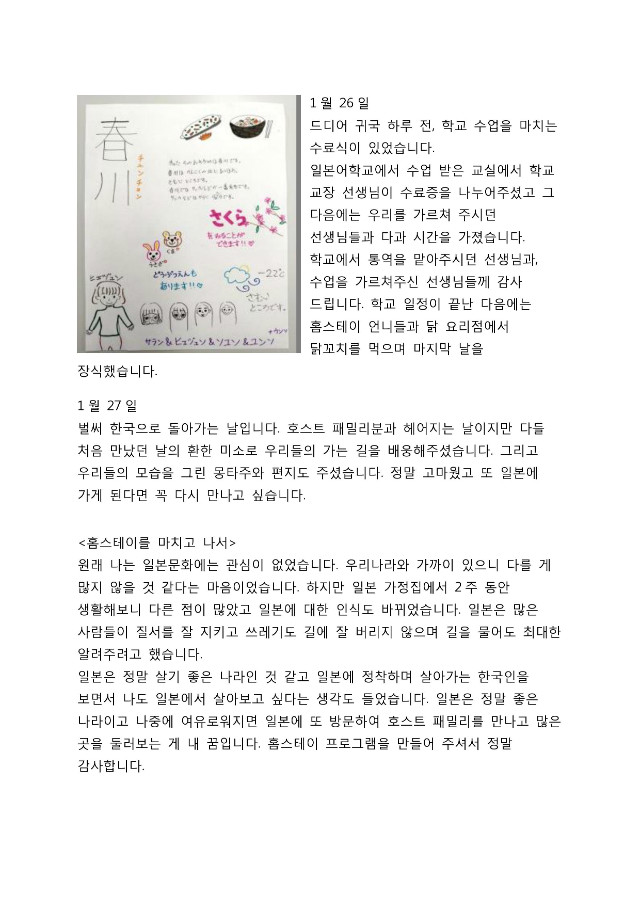 春川
チュンチョン
さくら
見ることが
できます!!
うさぎ
くま
どうぶつえんも
あります!!
-22℃
さむい
ところです。
ヒョジュン
サラン & ヒョジュン & ソユン & ユンソ
1월 26일
드디어 귀국 하루 전, 학교 수업을 마치는
수료식이 있었습니다.
일본어학교에서 수업 받은 교실에서 학교
교장 선생님이 수료증을 나누어주셨고 그
다음에는 우리를 가르쳐 주시던
선생님들과 다과 시간을 가졌습니다.
학교에서 통역을 맡아주시던 선생님과,
수업을 가르쳐주신 선생님들께 감사
드립니다. 학교 일정이 끝난 다음에는
홈스테이 언니들과 닭 요리점에서
닭꼬치를 먹으며 마지막 날을
장식했습니다.
1월 27일
벌써 한국으로 돌아가는 날입니다. 호스트 패밀리분과 헤어지는 날이지만 다들
처음 만났던 날의 환한 미소로 우리들의 가는 길을 배웅해주셨습니다. 그리고
우리들의 모습을 그린 몽타주와 편지도 주셨습니다. 정말 고마웠고 또 일본에
가게 된다면 꼭 다시 만나고 싶습니다.
<홈스테이를 마치고 나서>
원래 나는 일본문화에는 관심이 없었습니다. 우리나라와 가까이 있으니 다를 게
많지 않을 것 같다는 마음이었습니다. 하지만 일본 가정집에서 2주 동안
생활해보니 다른 점이 많았고 일본에 대한 인식도 바뀌었습니다. 일본은 많은
사람들이 질서를 잘 지키고 쓰레기도 길에 잘 버리지 않으며 길을 물어도 최대한
알려주려고 했습니다.
일본은 정말 살기 좋은 나라인 것 같고 일본에 정착하며 살아가는 한국인을
보면서 나도 일본에서 살아보고 싶다는 생각도 들었습니다. 일본은 정말 좋은
나라이고 나중에 여유로워지면 일본에 또 방문하여 호스트 패밀리를 만나고 많은
곳을 둘러보는 게 내 꿈입니다. 홈스테이 프로그램을 만들어 주셔서 정말
감사합니다.